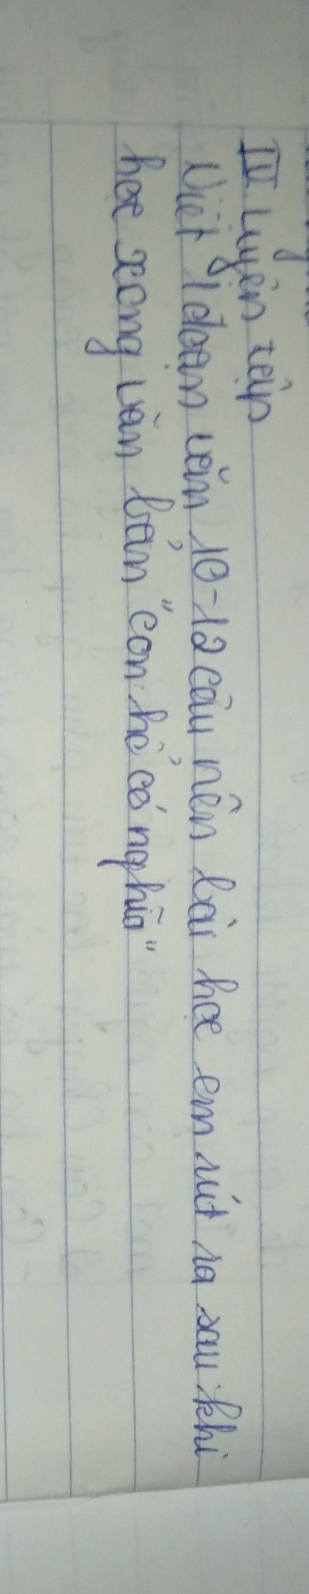 IV Luyện tập
Viết 1 đoạn văn 10-12 câu nên bài học em rút ra sau khi
học xong văn bản "con hổ có nghĩa"